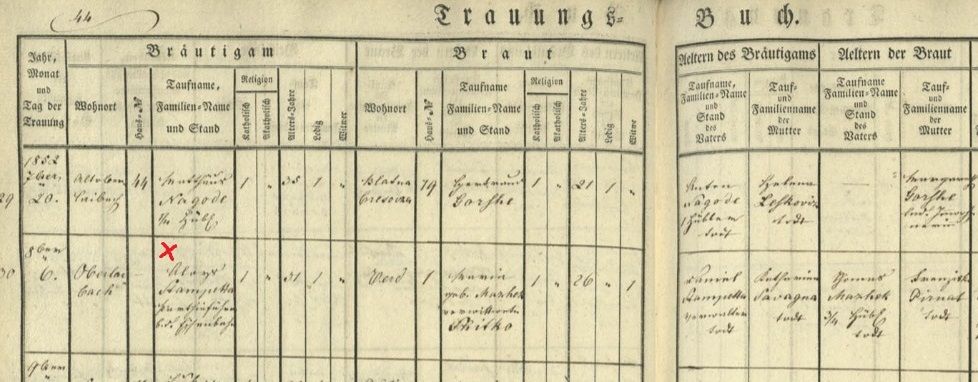 44
Trauungs-
Buch.
Bräutigam
Braut
Aeltern des Bräutigams
Aeltern der Braut
Jahr, Monat und Tag der Trauung
Wohnort
Haus-№
Taufname, Familien-Name und Stand
Religion
Katholisch
Akatholisch
Alters-Jahre
Ledig
Witwer
Wohnort
Haus-№
Taufname Familien-Name und Stand
Religion
Katholisch
Akatholisch
Alters-Jahre
Ledig
Witwe
Taufname, Familien-Name und Stand des Vaters
Tauf- und Familienname der Mutter
Taufname Familien-Name und Stand des Vaters
Tauf- und Familienname der Mutter
29
1852
7ber
20.
44
Matthäus
Nagode
1 " 35 1 "
79
Gertraud
Gorshe
1 " 21 1 "
Anton
Nagode
todt
Helena
todt
Gorshe
30
8ber
6.
Oberlai
bach
Aloys
Stampetta
1 " 31 1 "
Verd
1
Maria
geb. Mazhek
verwittwete
1 " 26 " 1
Daniel
Stampetta
Verwalter
todt
Katharina
Savagna
todt
Thomas
Mazhek
3/4 Hübl.
todt
Franziska
Pirnat
todt
9ber